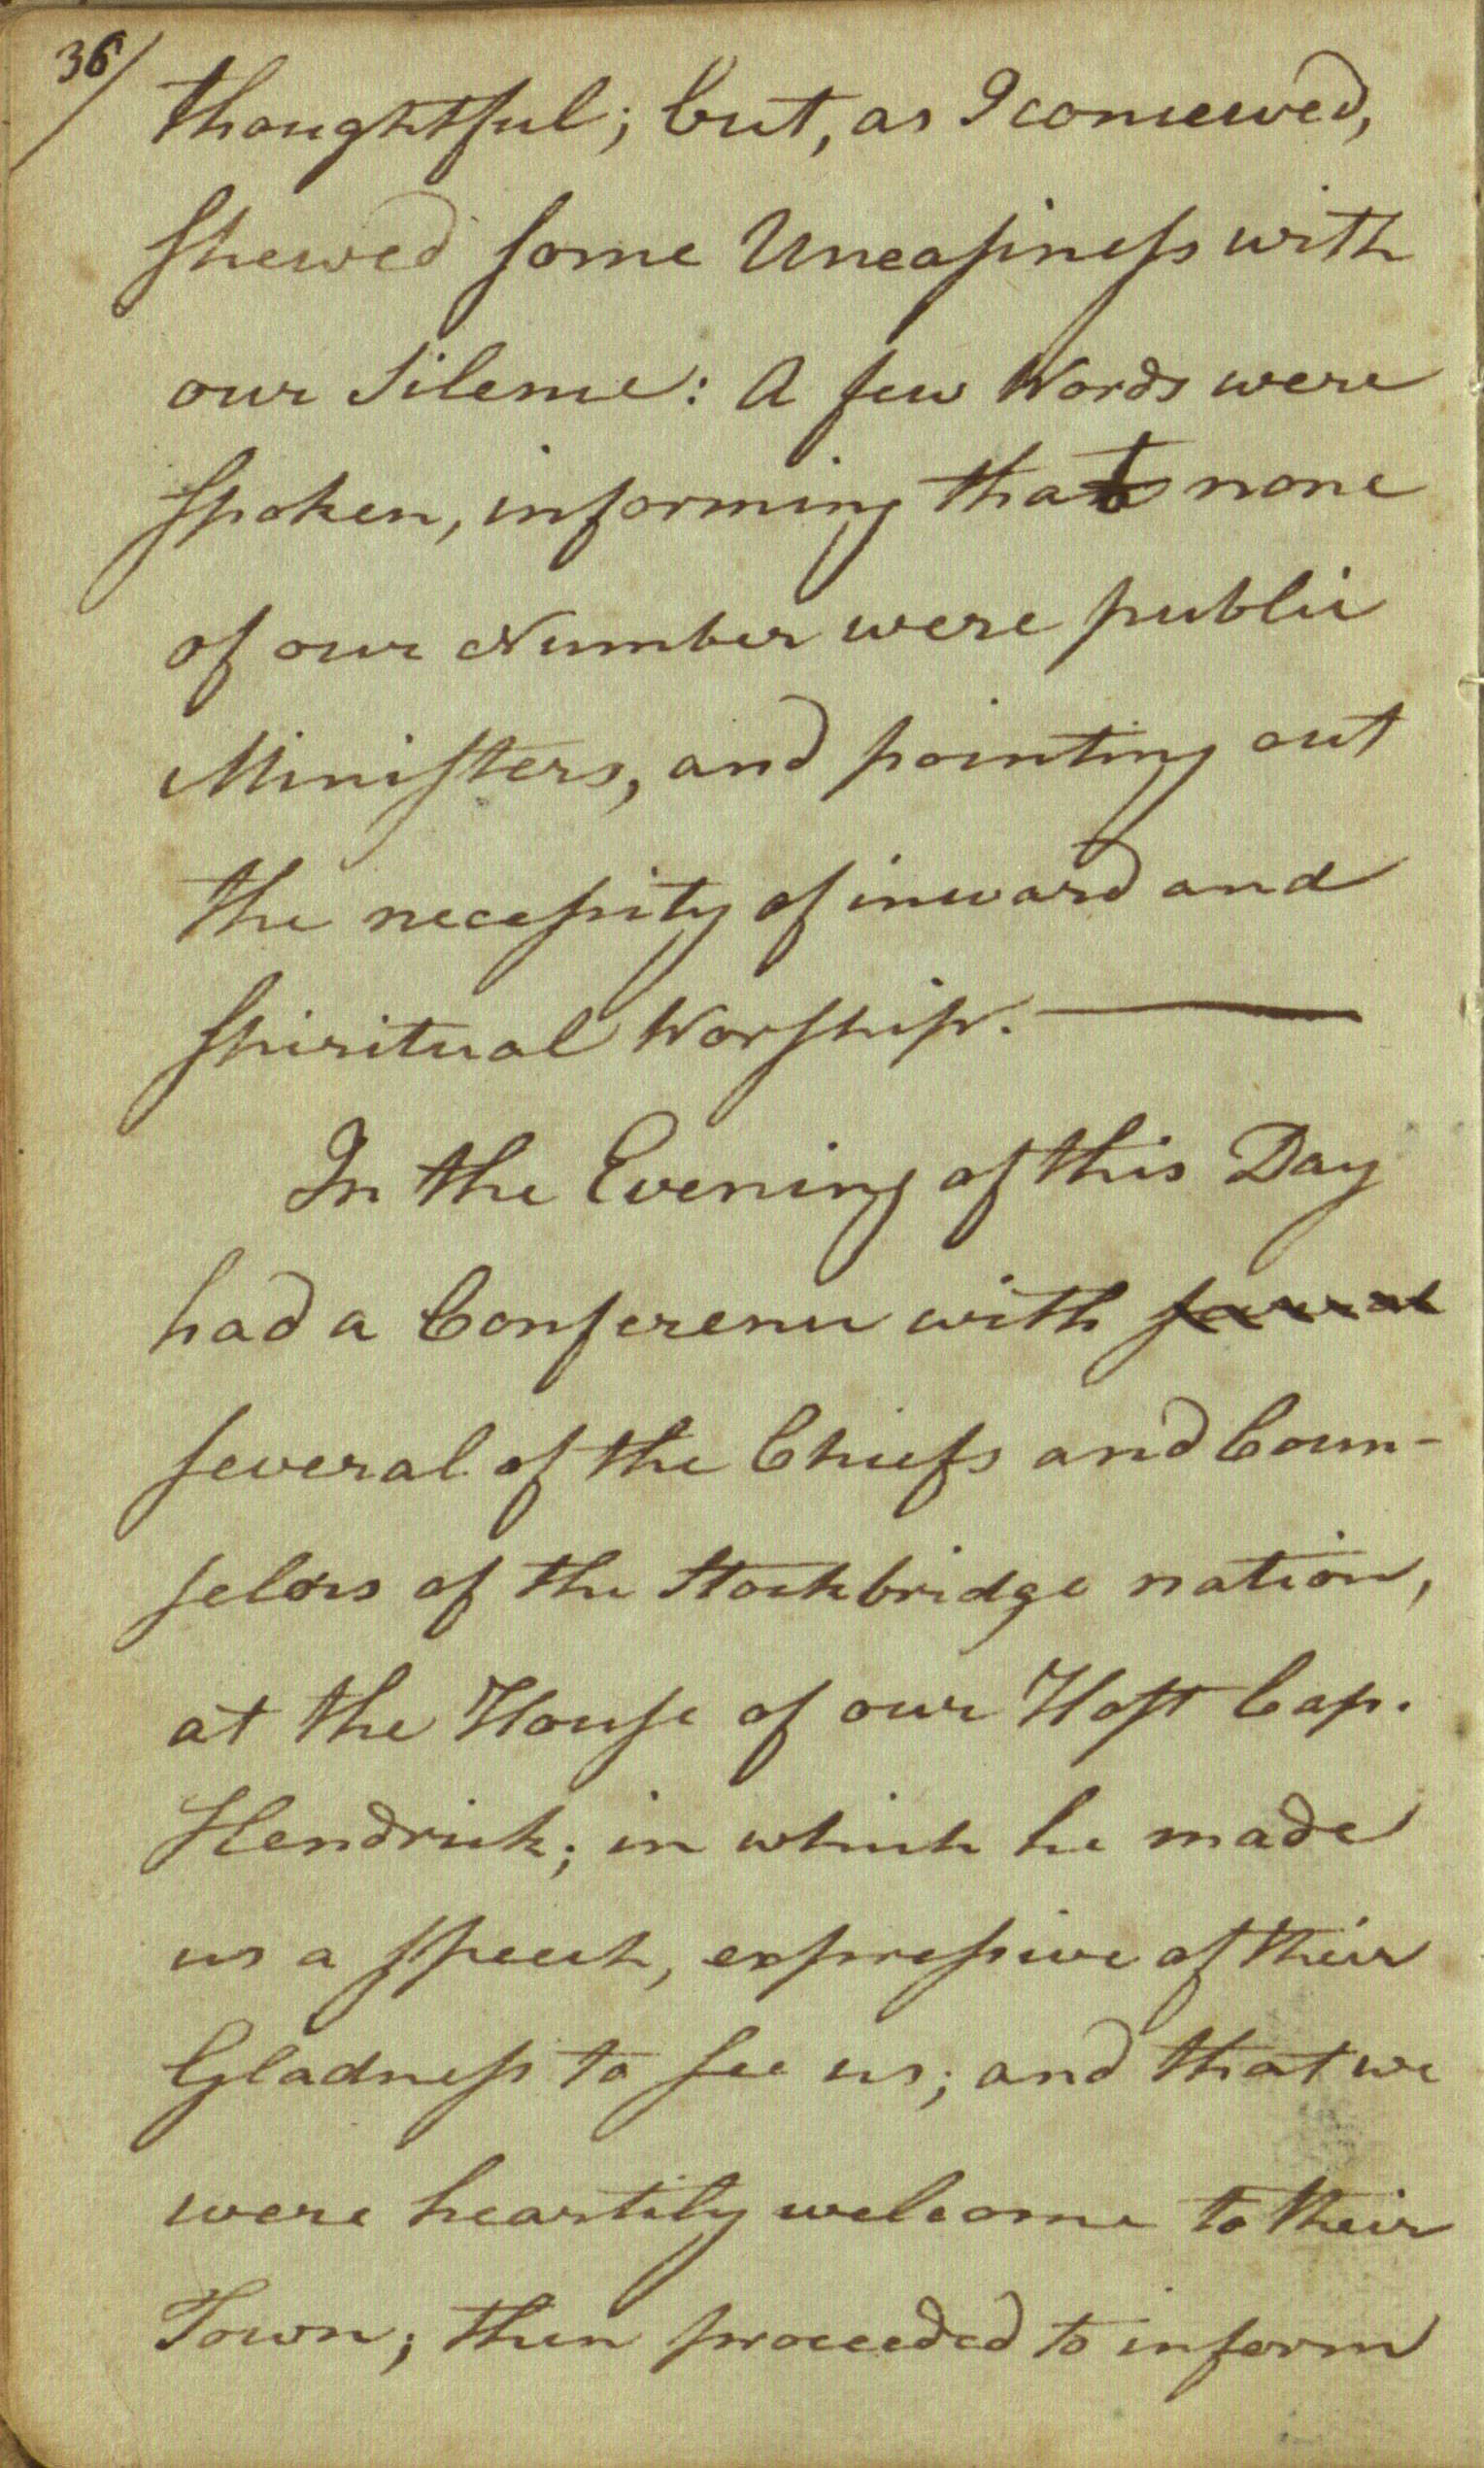 36/
thoughtful; but, as I conceived,
shewed some Uneasiness with
our Silence: A few Words were
spoken, informing that none
of our Number were public
Ministers, and pointing out
the necessity of inward and
spiritual Worship.
In the Evening of this Day
had a Conference with
several of the Chiefs and Coun-
selors of the Stockbridge nation,
at the House of our Host Cap.
Hendrick; in which he made
us a speech, expressive of their
Gladness to see us; and that we
were heartily welcome to their
Town; then proceeded to inform